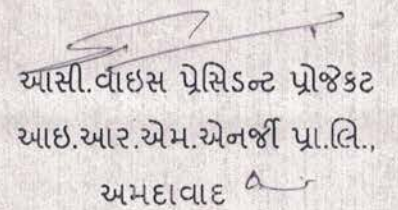 આસી.વાઇસ પ્રેસિડન્ટ પ્રોજેકટ
આઇ.આર.એમ.એનર્જી પ્રા.લિ.,
અમદાવાદ